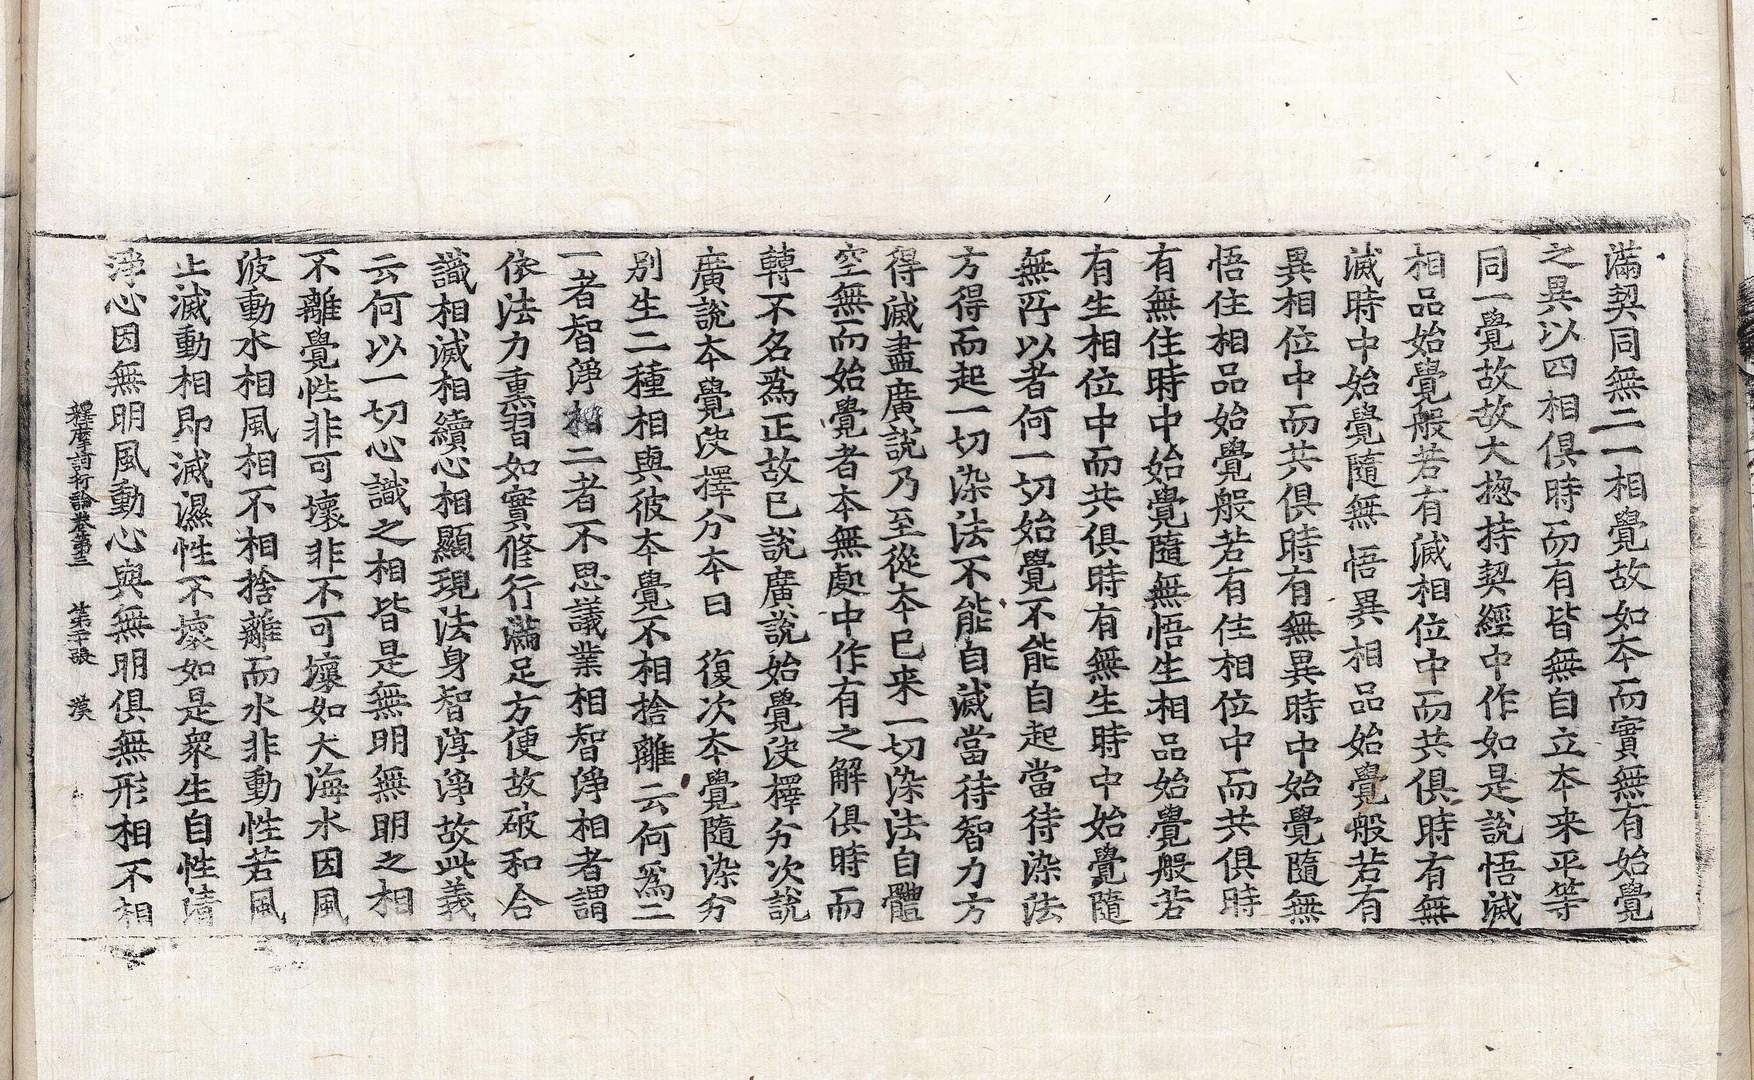 滿契同無二一相覺故如本而實無有始覺
之異以四相俱時而有皆無自立本来平等
同一覺故故大揔持契經中作如是說悟滅
相品始覺般若有滅相位中而共俱時有無
滅時中始覺隨無 悟異相品始覺般若有
異相位中而共俱時有無異時中始覺隨無
悟住相品始覺般若有住相位中而共俱時
有無住時中始覺隨無悟生相品始覺般若
有生相位中而共俱時有無生時中始覺隨
無所以者何一切始覺不能自起當待染法
方得而起一切染法不能自滅當待智力方
得滅盡廣說乃至從本已来一切染法自體
空無而始覺者本無處中作有之解俱時而
轉不名爲正故已說廣說始覺決擇分次說
廣說本覺決擇分本曰 復次本覺隨染分
別生二種相與彼本覺不相捨離云何爲二
一者智淨相二者不思議業相智淨相者謂
依法力熏習如實修行滿足方便故破和合
識相滅相續心相顯現法身智淳淨故此義
云何以一切心識之相皆是無明無明之相
不離覺性非可壞非不可壞如大海水因風
波動水相風相不相捨離而水非動性若風
止滅動相即滅濕性不壞如是衆生自性清
淨心因無明風動心與無明俱無形相不相
釋摩訶衍論卷第三 第二十張 漢